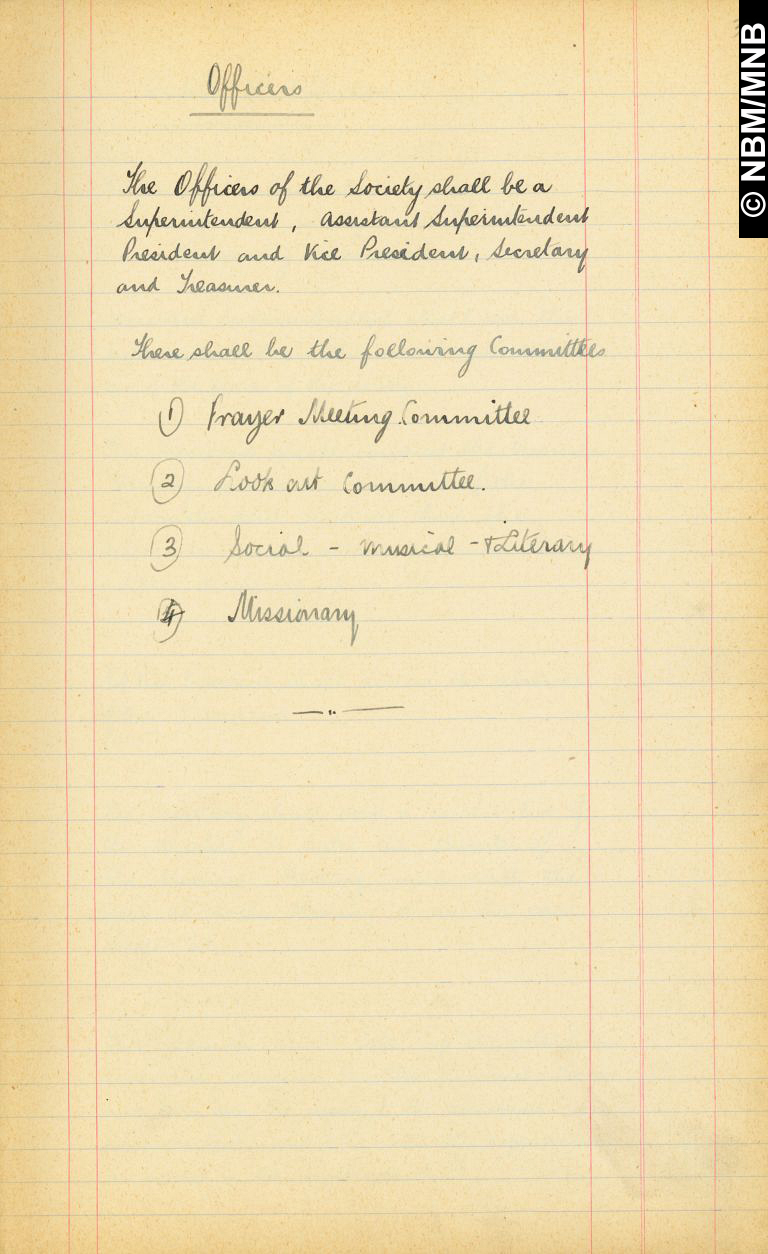 © NBM/MNB
Officers
The Officers of the Society shall be a
Superintendent, Assistant Superintendent
President and Vice President, Secretary
and Treasurer.
There shall be the following Committees
① Prayer Meeting Committee
② Look out Committee.
③ Social - musical - & Literary
④ Missionary